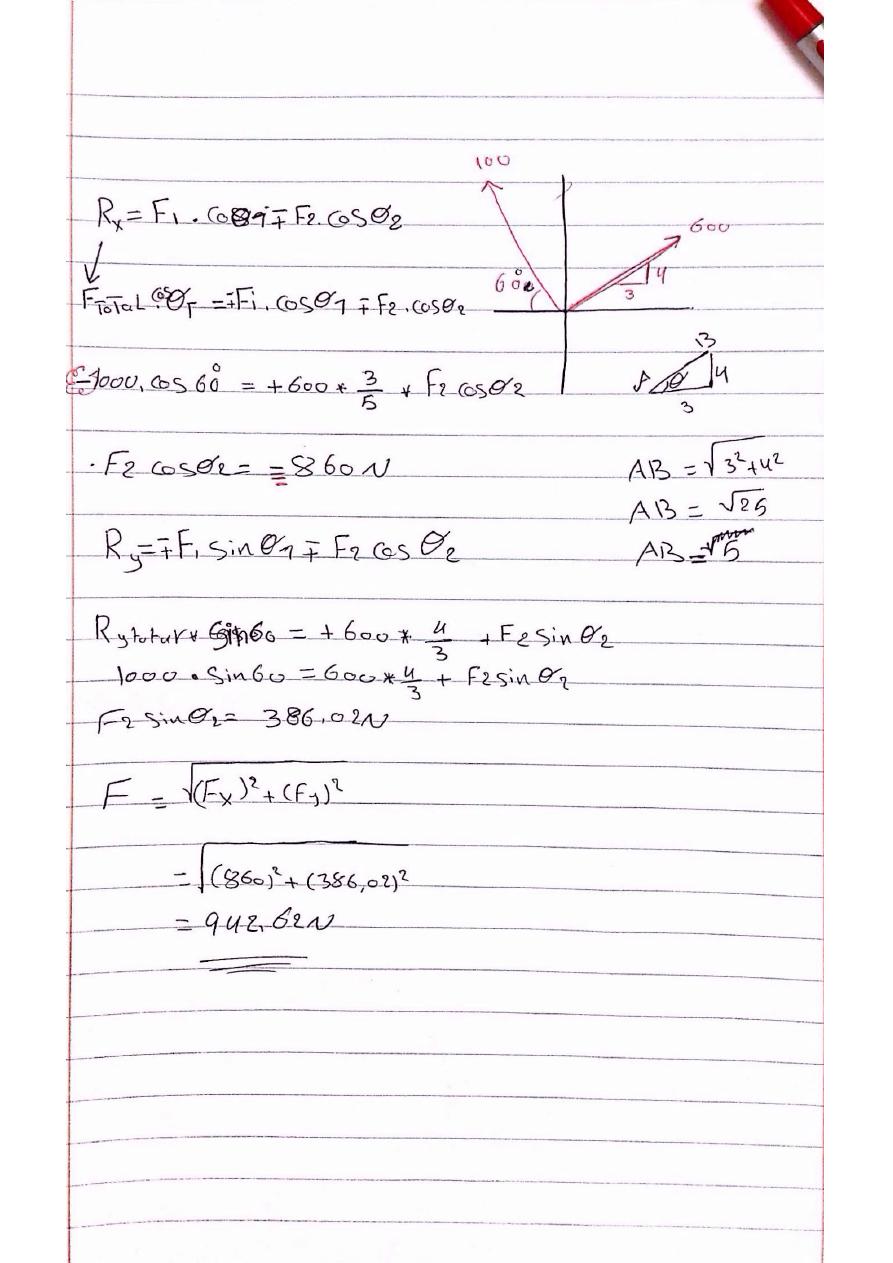 100
Rₓ = F₁ . cosθ₁ ∓ F₂ . cosθ₂
600
60°
4
3
F_ToTaL . cosθ_T = ∓F₁ . cosθ₁ ∓ F₂ . cosθ₂
B
A θ 4
3
-1000 . cos 60° = +600 * 3/5 + F₂ cosθ₂
. F₂ cosθ₂ = = 860 N
AB = √3²+4²
AB = √25
R_y = ∓F₁ sinθ₁ ∓ F₂ cos θ₂
AB = 5
R_y * sin60 = +600 * 4/3 + F₂ sin θ₂
1000 . sin60 = 600 * 4/3 + F₂ sin θ₂
F₂ sinθ₂ = 386,02N
F = √(Fₓ)² + (F_y)²
= √(860)² + (386,02)²
= 942,62N